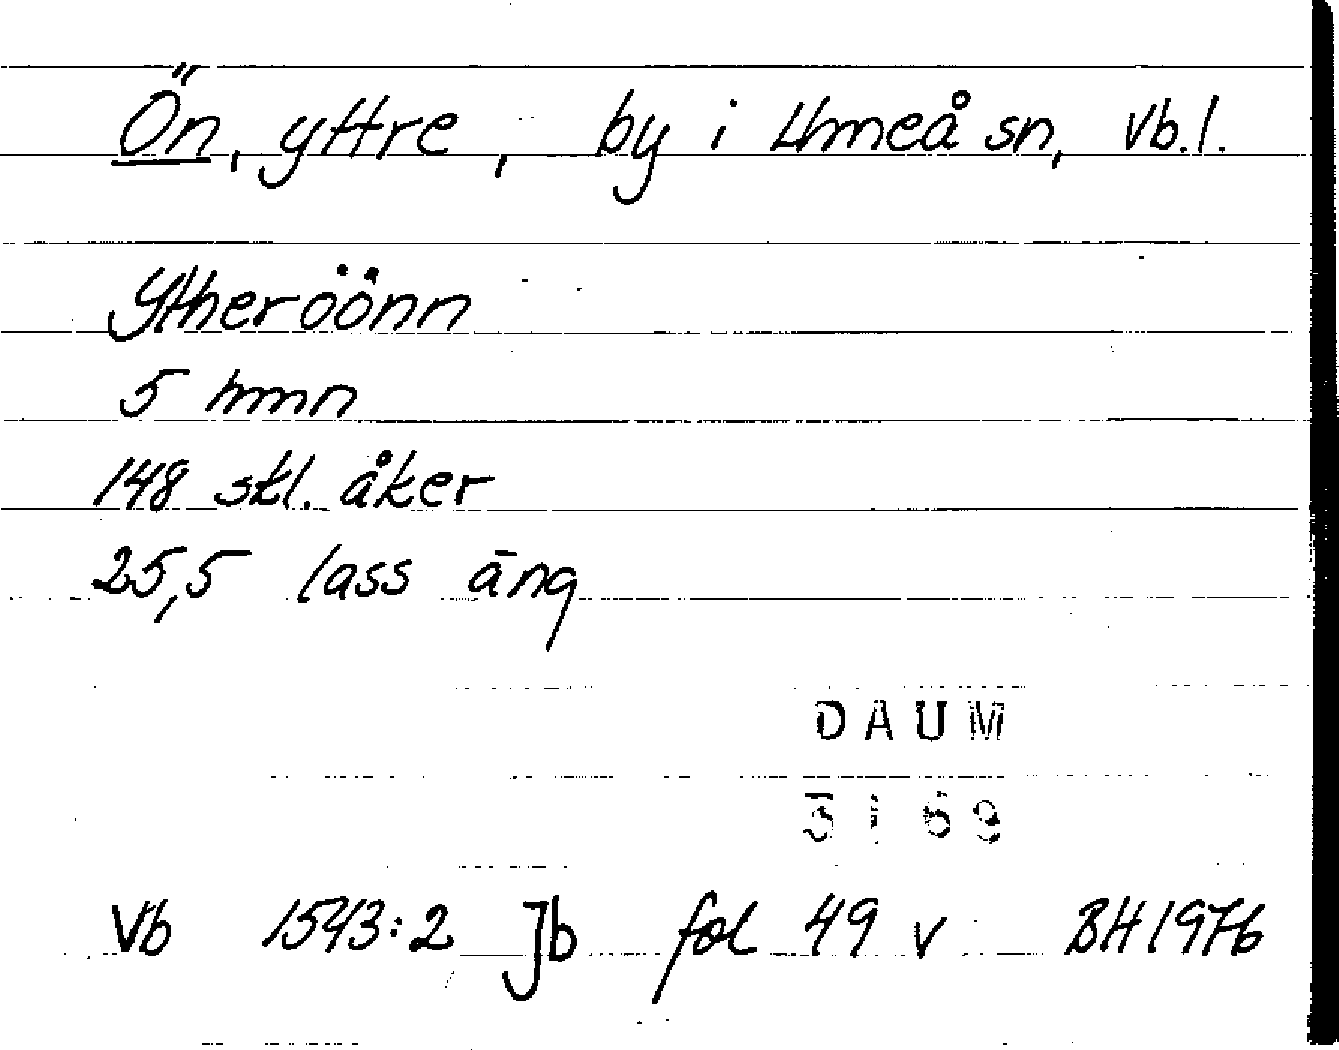 Ön, yttre, by i Umeå sn, Vb.l.
Ytheröönn
5 hmn
148 skl. åker
25,5 lass äng
DAUM
3169
Vb 1543:2 Jb fol 49 v BH 1976